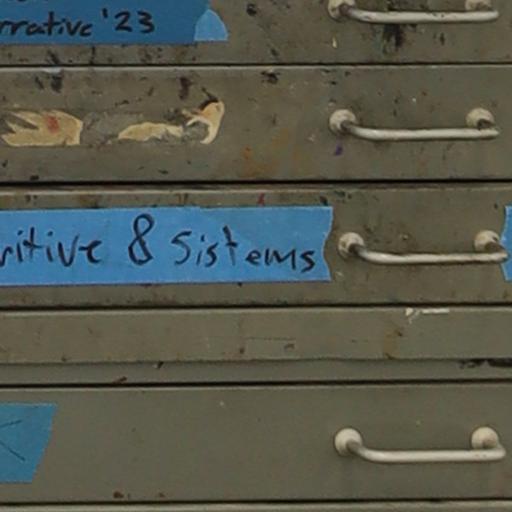 rrative '23
ritive & Sistems